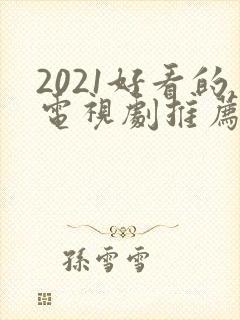 2021好看的
電視劇推薦
孫雪雪